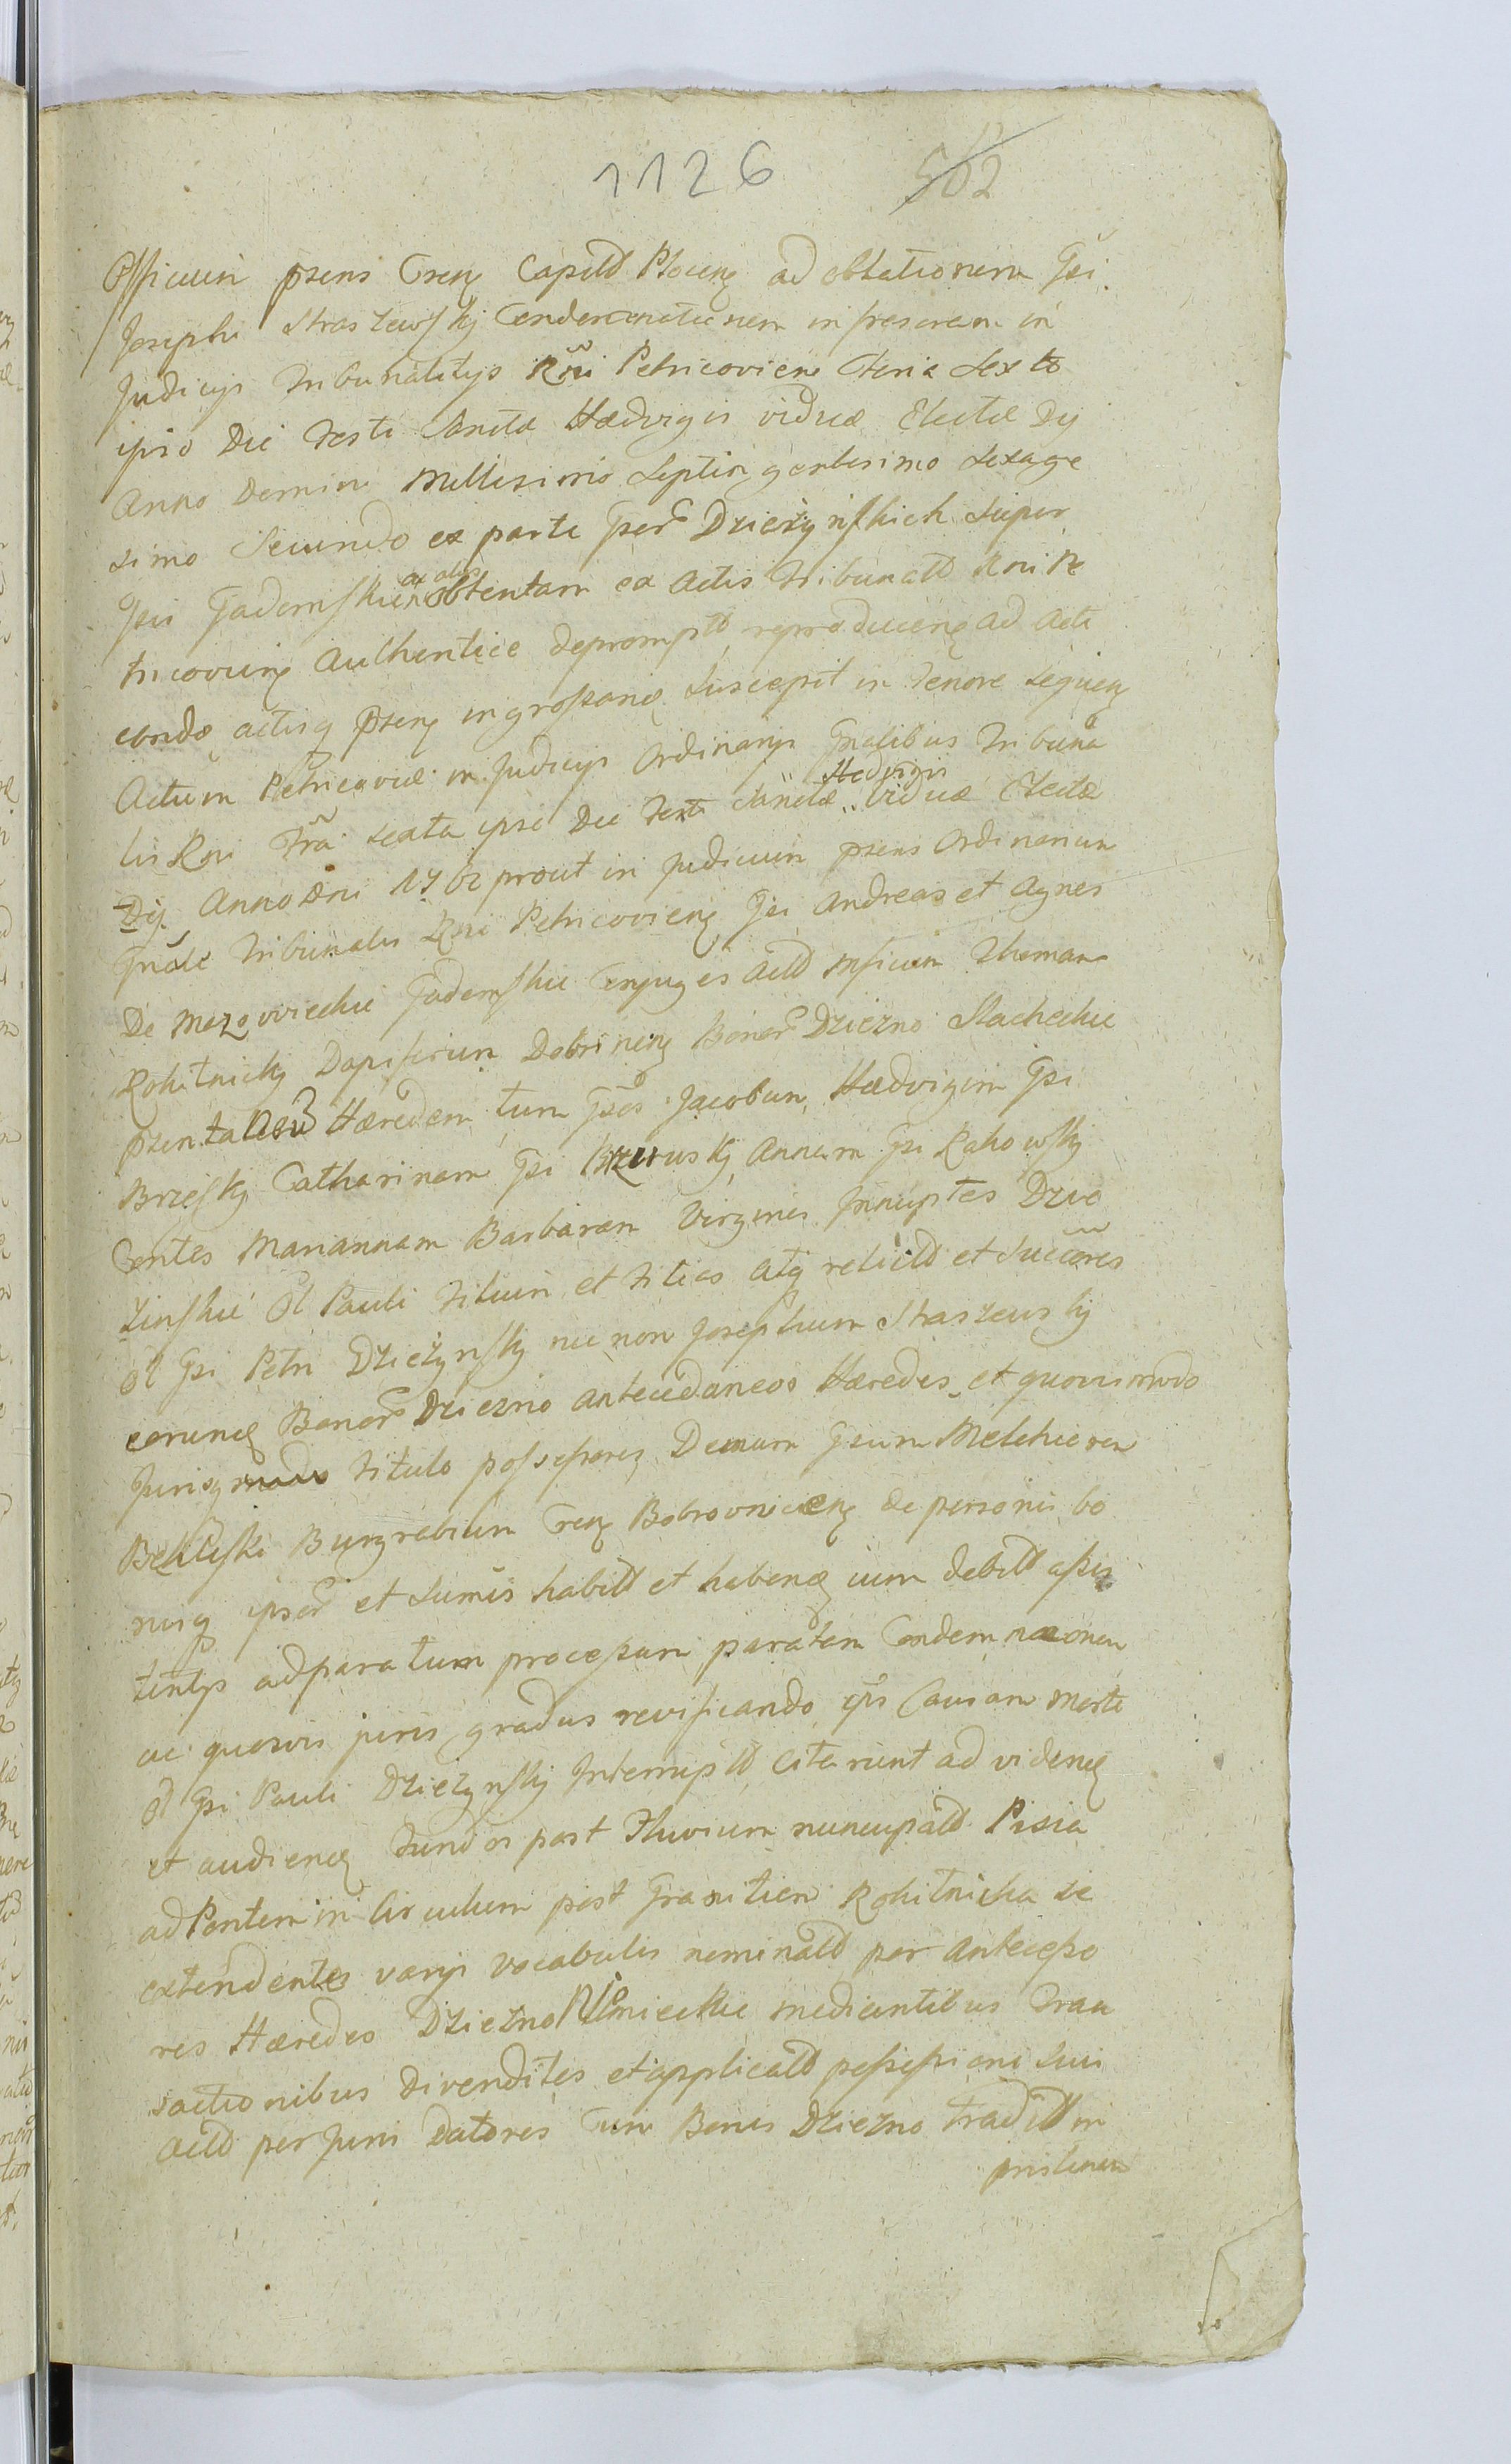 1126 502
Officium pzens Crenę Capittl Plocenę ad oblationem Gsi
Josephi Straszewskj Condemnationem infrascram in
Judicijs Tribunalitijs Rñi Petricovien Feria Sexta
ipso Die Festi Sanctæ Hædvigis viduæ Electæ Dij
Anno Domini Millesimo Septingentesimo Sexage
simo Secundo ex parte Gser Dzieżynskich super
Gsis Gadomskie ex alijs obtentam ex Actis Tribunall Rni Pe
tricovienę Authentice depromptt, reproducenę ad Acta
condę actisq pzenę ingrossanę suscepit in Tenore sequenę
Actum Petricoviæ in Judicijs Ordinarijs Gnalibus Tribuna
lis Rni Fra sexta ipso Die Festi Sanctæ Hedvigis Viduæ Electæ
Dij Anno Dni 1762 prout in Judicium pzens Ordinarium
Gnale Tribunalis Rni Petricovienę Gsi Andreas et Agnes
De Mazowieckie Gadomskie Conjuges Actt Mficum Thomam
Rokitnickj Dapiferum Dobrinenę Bonor Dziezno Slacheckie
Hæredem tum Gsos Jacobum, Hædvigim Gsi
Brzeskj Catharinam Gsi Annam Gsi Rakowskj
Consortes Mariannam Barbaram Virgines Innuptas Dzie
zinskie Ol Pauli Filium et Filias atq relictt et Succores
Ol Gsi Petri Dzieżynskj nec non Josephum Straszewskj
eorunę Bonor Dziezno antecedaneos Hæredes, et quovis modo
Jurisq Titulo possessores Demum Gsum Melchiorem
Burgrabium Crenę Bobrovnicenę de personis, bo
nisq ipsor et sumis habitt et habenę cum debitt assis
tentijs ad paratum processum, paratam Condemnaonem
ac quosvis juris gradus revificando, ops Causam Morte
Ol Gsi Pauli Dzieżynskj Interruptt, citarunt ad videnę
et audienę Fundos post Fluvium nuncupatt Pisia
ad Pontem in Circulum post Granitiem Rokitnicka se
extendentes varijs vocabulis nominatt per Antecesso
res Hæredes Dziezno mediantibus Tran
sactionibus divenditos et applicatt possessioni sui
actt per Juris Datores Cum Bonis Dziezno traditt in
pristinum